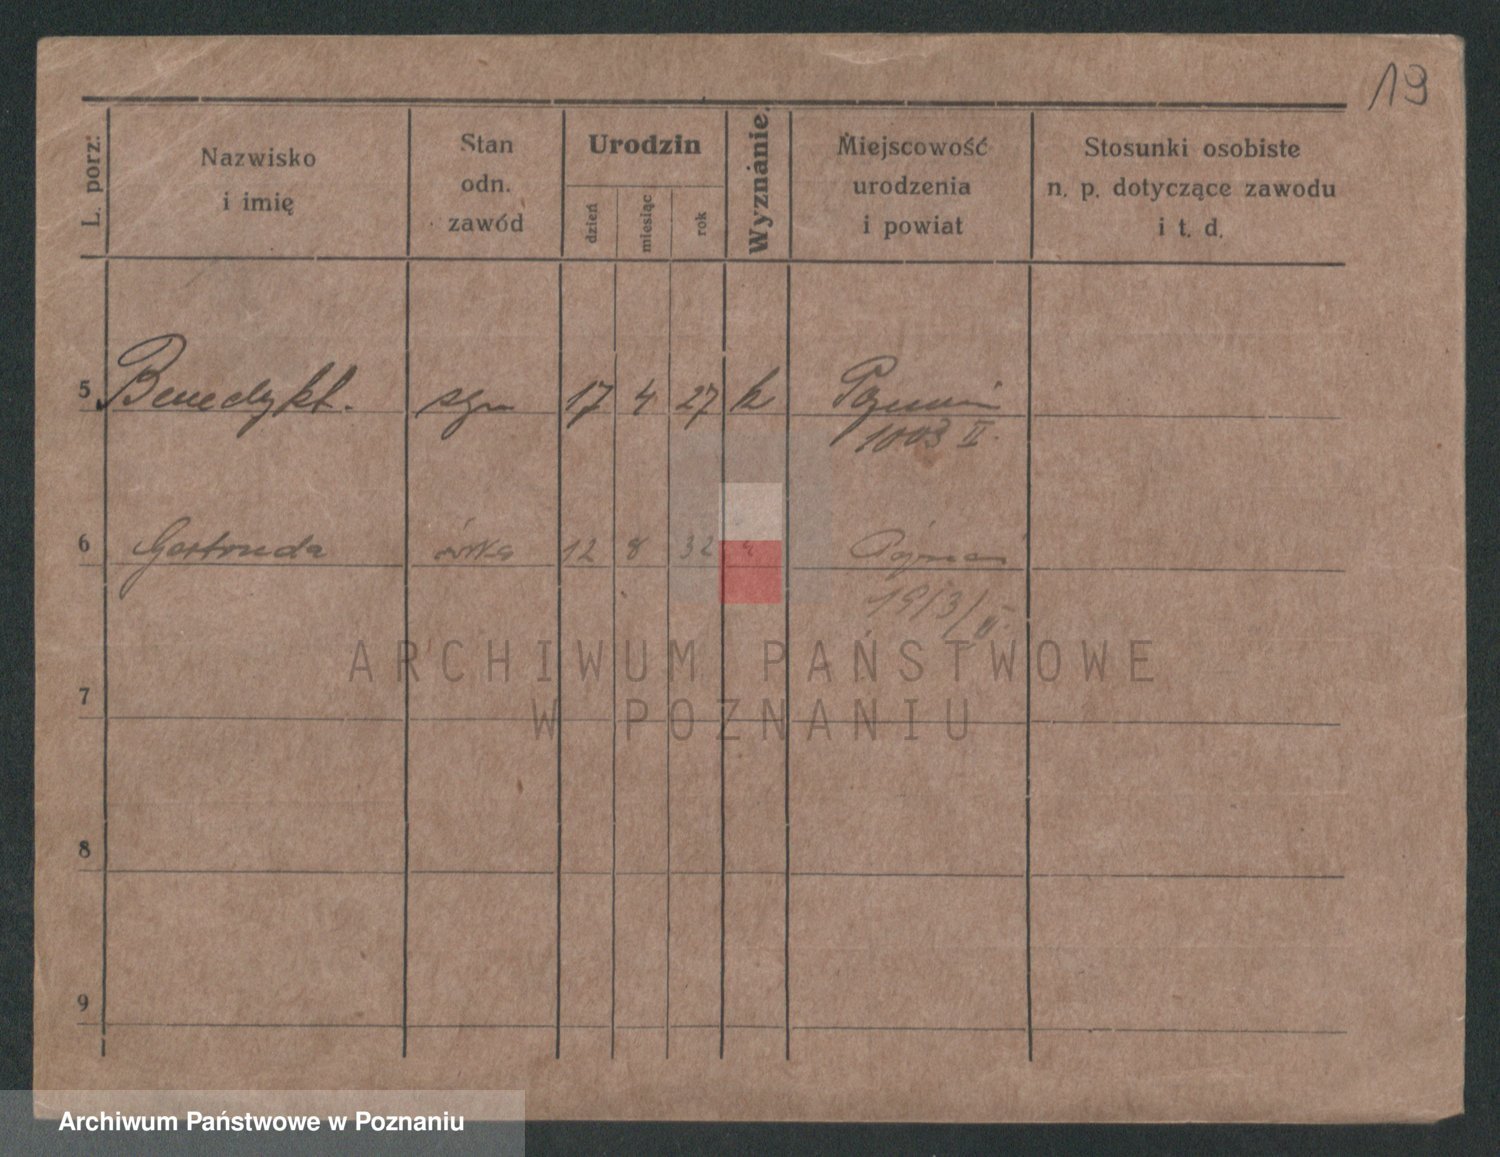 19
L. porz:
Nazwisko
i imię
Stan
odn.
zawód
Urodzin
dzień
miesiąc
rok
Wyznanie.
Miejscowość
urodzenia
i powiat
Stosunki osobiste
n. p. dotyczące zawodu
i t. d.
5 Benedykt. syn 17 4 27 k Poznań
1003 II.
6 Gertruda córka 12 8 32 k Poznań
1913/II.
ARCHIWUM PAŃSTWOWE
7
W POZNANIU
8
9
Archiwum Państwowe w Poznaniu